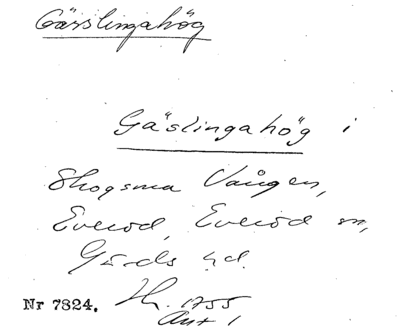 Gässlingahög
Gäslingahög i
Skogsma Vången,
Everöd, Everöd sn,
Gärds hd.
Nr 7824. Th. 1755
Akt 1